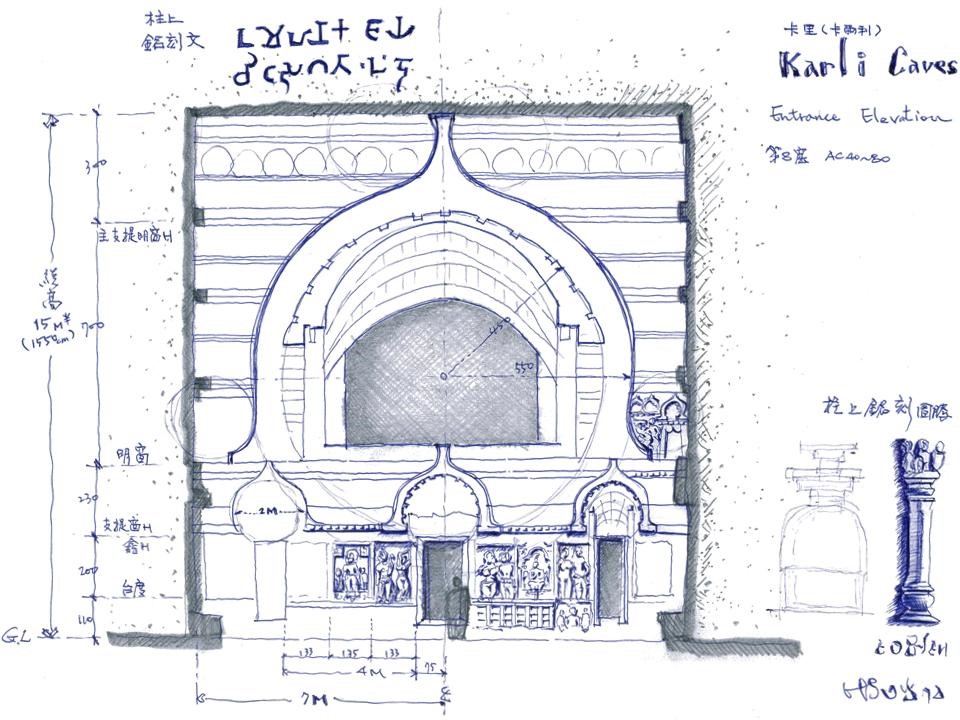 柱上
銘刻文
卡里(卡爾利)
Karli Caves
Entrance Elevation
第8窟 AC40~80
340
主支提明窗H
總高
15M±
(1550cm)
700
450
550
明窗
230
2M
支提窗H
龕H
200
台度
110
G.L
133
135
133
75
4M
7M
柱上銘刻圖騰